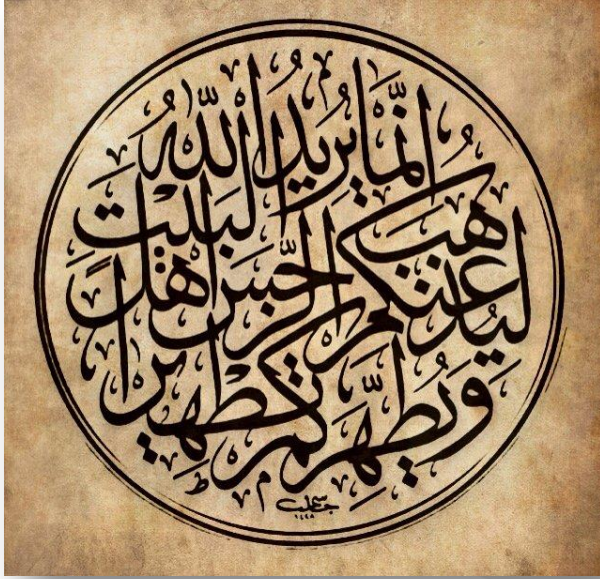 إنَّمَا يُرِيدُ اللَّهُ
لِيُذْهِبَ عَنْكُمُ الرِّجْسَ أَهْلَ الْبَيْتِ
وَيُطَهِّرَكُمْ تَطْهِيرًا